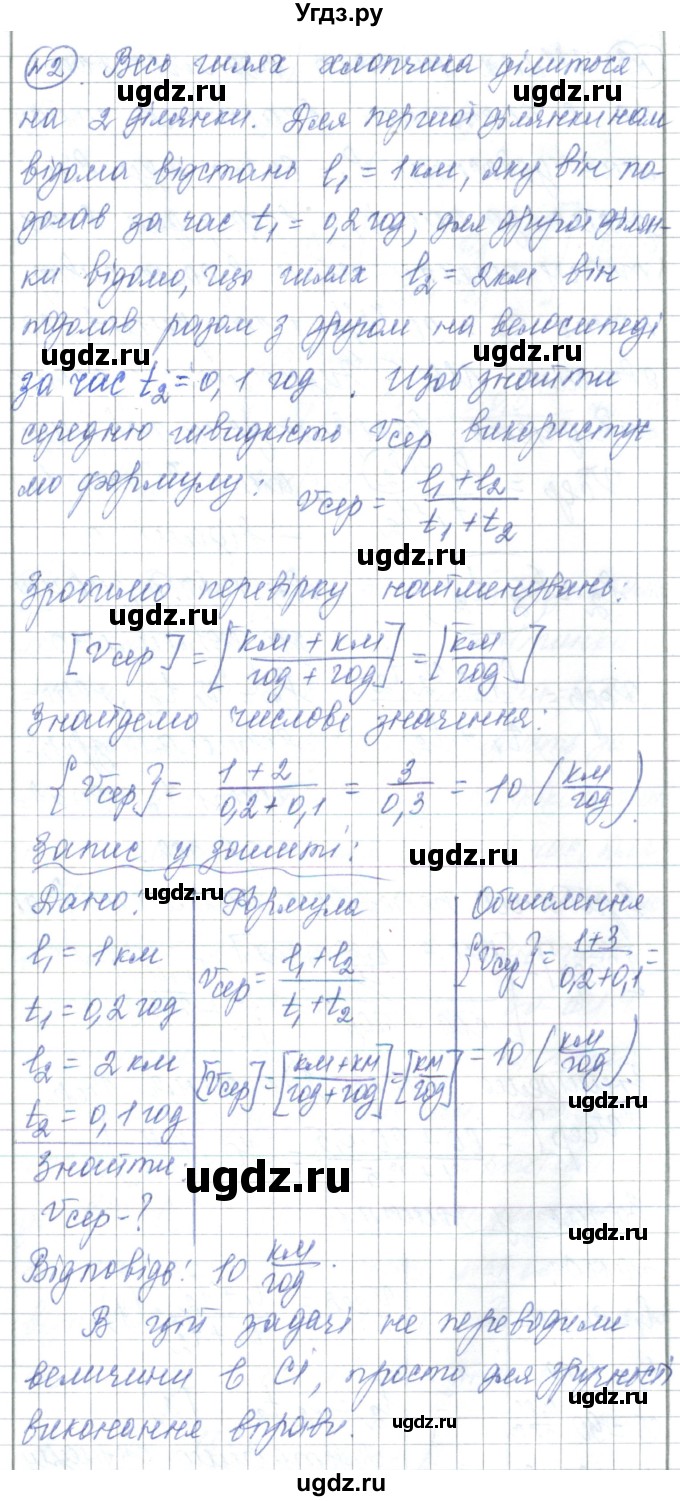 Угдз.ру
№2. Весь шлях хлопчика ділиться
на 2 ділянки. Для першої ділянки нам
відома відстань l₁ = 1 км, яку він по-
долав за час t₁ = 0,2 год; для другої ділян-
ки відомо, що шлях l₂ = 2 км він
подолав разом з другом на велосипеді
за час t₂ = 0,1 год. Щоб знайти
середню швидкість vсер використує
мо формулу: vсер = (l₁ + l₂)/(t₁ + t₂)
Зробимо перевірку найменувань:
[vсер] = [(км + км)/(год + год)] = [км/год]
Знайдемо числове значення:
{vсер} = (1 + 2)/(0,2 + 0,1) = 3/0,3 = 10 (км/год).
Запис у зошиті:
Дано:
l₁ = 1 км
t₁ = 0,2 год
l₂ = 2 км
t₂ = 0,1 год
Знайти:
vсер - ?
Формула
vсер = (l₁ + l₂)/(t₁ + t₂)
[vсер] = [(км + км)/(год + год)] = [км/год]
Обчислення
{vсер} = (1 + 3)/(0,2 + 0,1) =
= 10 (км/год).
Відповідь: 10 км/год.
В цій задачі не переводили
величини в СІ, просто для зручності
виконання вправи.
ugdz.ru
ugdz.ru
ugdz.ru
ugdz.ru
ugdz.ru
ugdz.ru
ugdz.ru
ugdz.ru
ugdz.ru
ugdz.ru
ugdz.ru
ugdz.ru
ugdz.ru
ugdz.ru